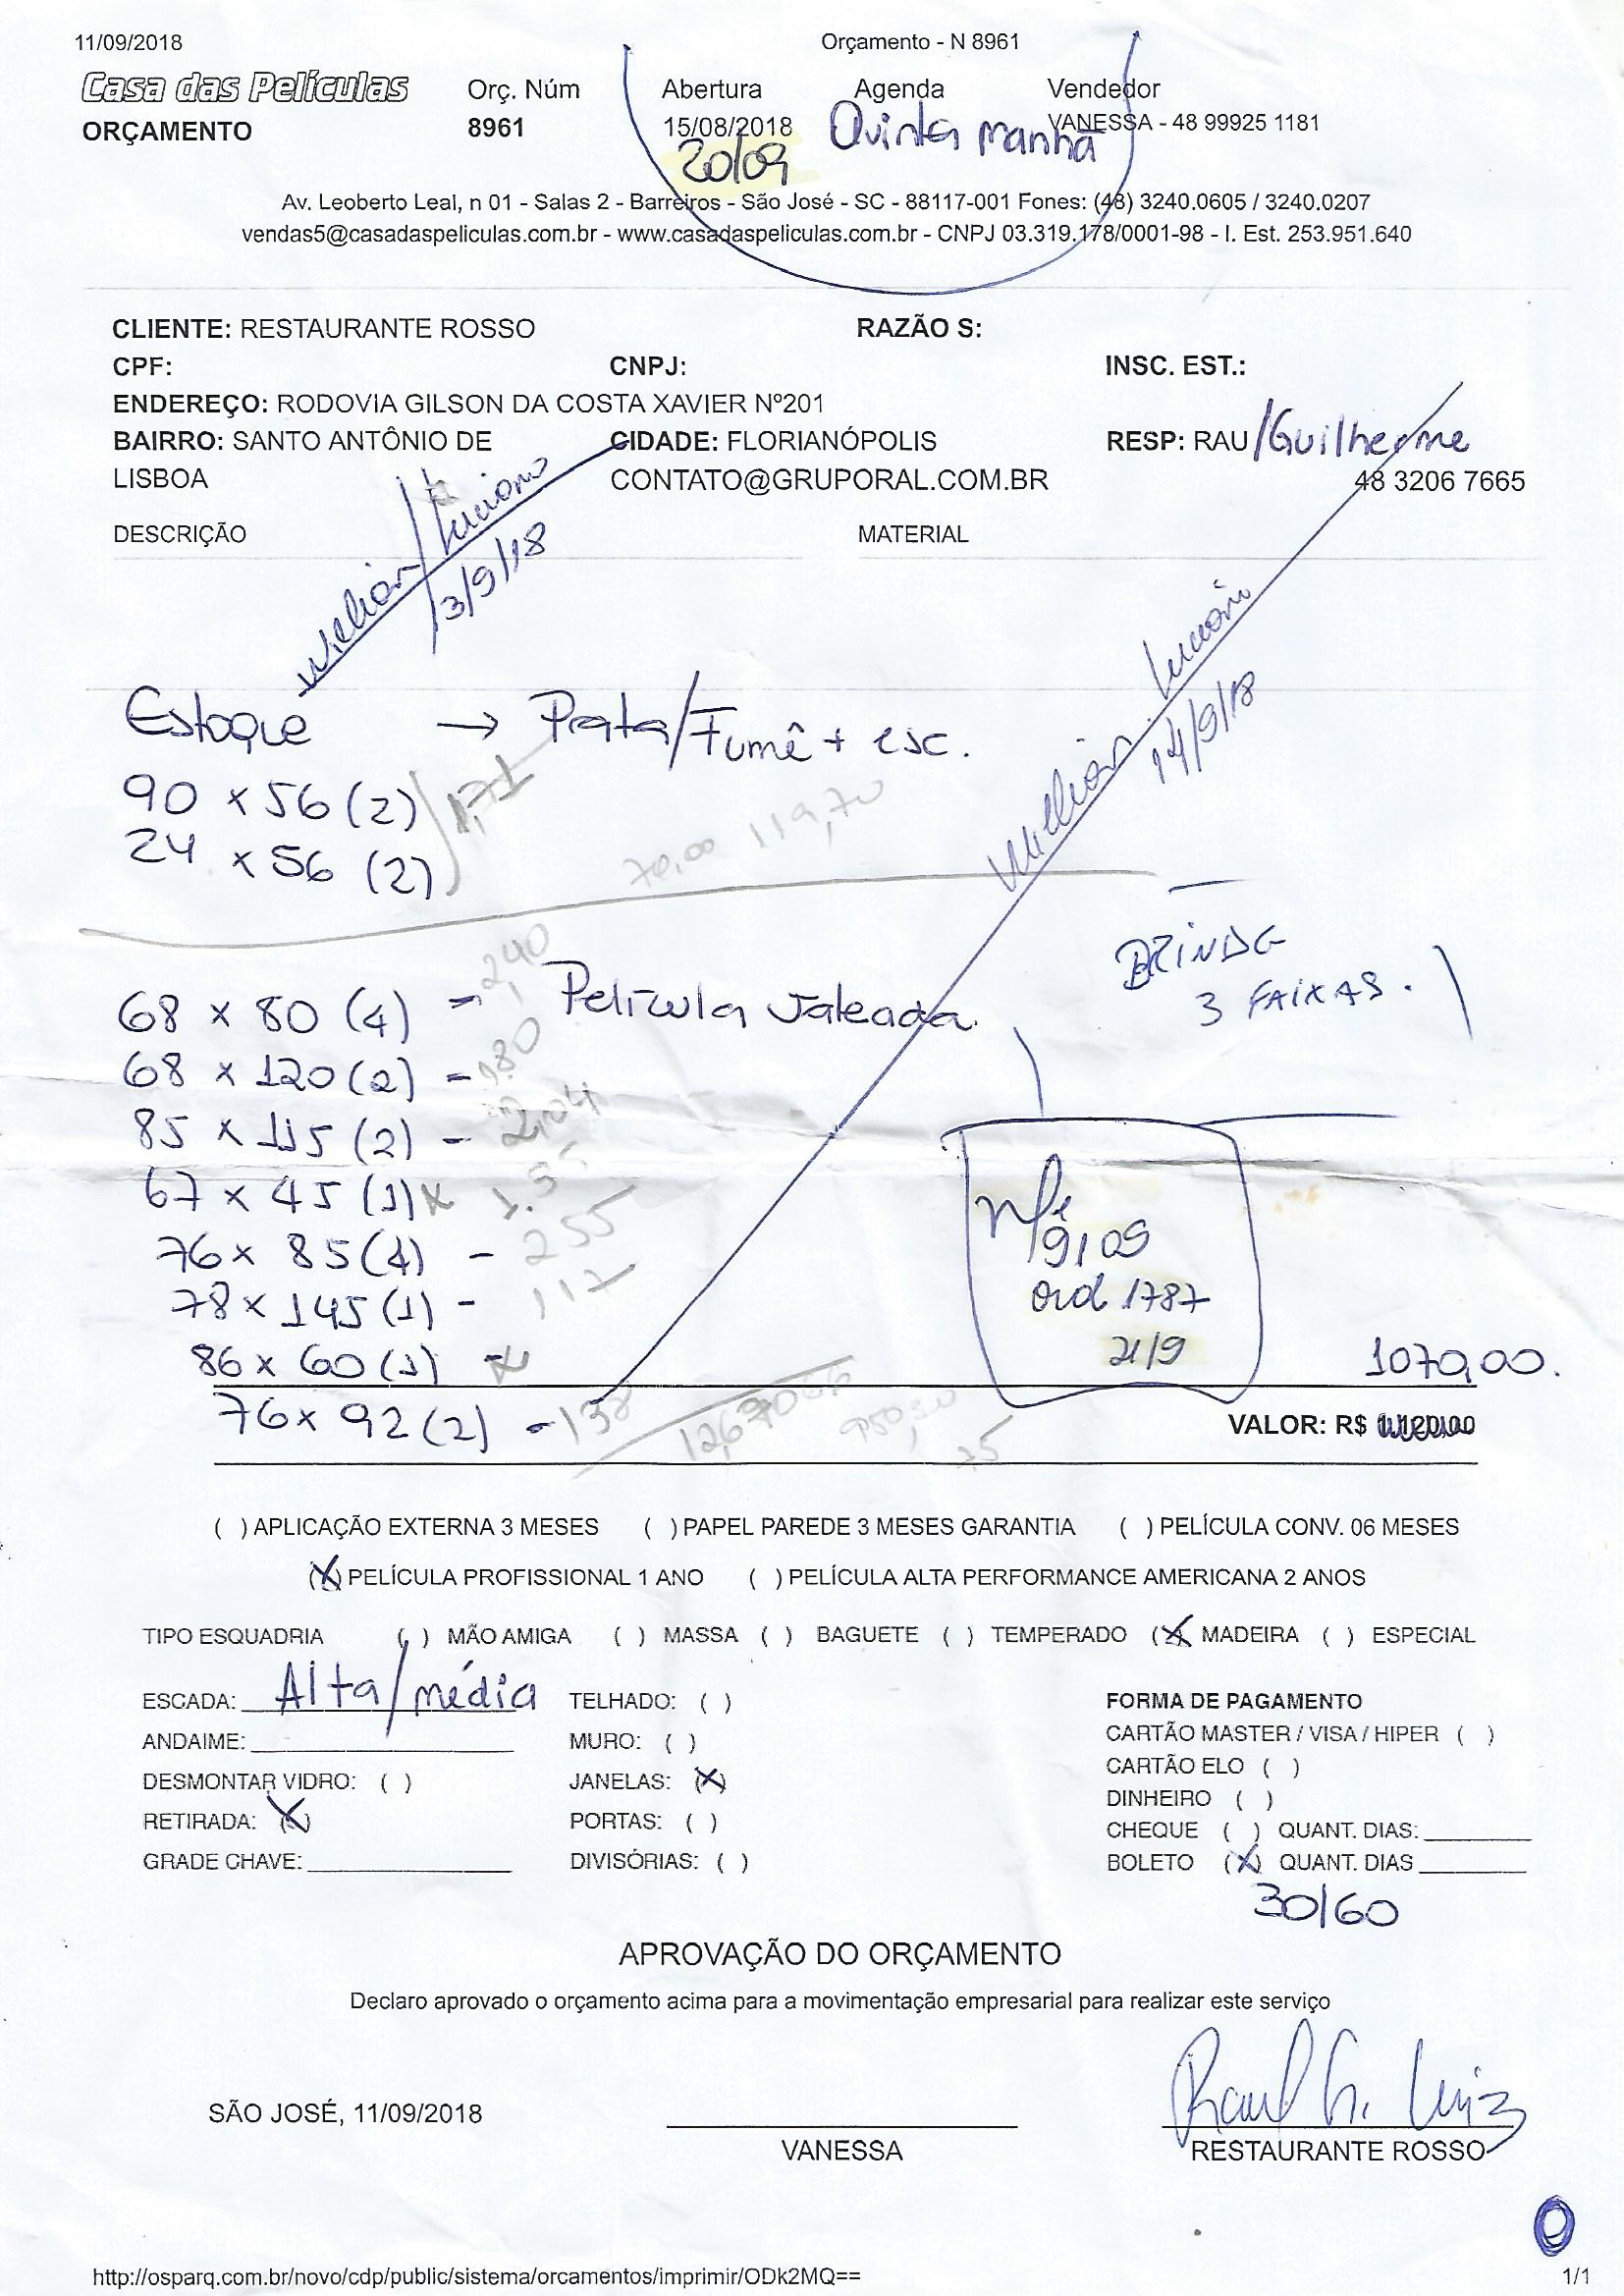 11/09/2018 Orçamento - N 8961
Casa das Películas Orç. Núm Abertura Agenda Vendedor
ORÇAMENTO 8961 15/08/2018 Quinta manhã VANESSA - 48 99925 1181
20/09
Av. Leoberto Leal, n 01 - Salas 2 - Barreiros - São José - SC - 88117-001 Fones: (48) 3240.0605 / 3240.0207
vendas5@casadaspeliculas.com.br - www.casadaspeliculas.com.br - CNPJ 03.319.178/0001-98 - I. Est. 253.951.640
CLIENTE: RESTAURANTE ROSSO RAZÃO S:
CPF: CNPJ: INSC. EST.:
ENDEREÇO: RODOVIA GILSON DA COSTA XAVIER Nº201
BAIRRO: SANTO ANTÔNIO DE CIDADE: FLORIANÓPOLIS RESP: RAU/Guilherme
LISBOA CONTATO@GRUPORAL.COM.BR 48 3206 7665
DESCRIÇÃO MATERIAL
Willian/Luciano
13/9/18
Willian Luciano
14/9/18
Estoque → Prata/Fumê + esc.
90 x 56 (2) 1,71
24 x 56 (2) 70,00 119,70
BRINDE
3 FAIXAS.
68 x 80 (4) - 2,40 Película Jateada.
68 x 120 (2) - 1.80
85 x 115 (2) - 2,04
67 x 45 (1) x 1.35
76 x 85 (4) - 255
78 x 145 (1) - 117
86 x 60 (1) - x
76 x 92 (2) - 138
nfe
19109
ord 1787
21/9
1070,00.
VALOR: R$ 1.120,00
( ) APLICAÇÃO EXTERNA 3 MESES ( ) PAPEL PAREDE 3 MESES GARANTIA ( ) PELÍCULA CONV. 06 MESES
(X) PELÍCULA PROFISSIONAL 1 ANO ( ) PELÍCULA ALTA PERFORMANCE AMERICANA 2 ANOS
TIPO ESQUADRIA ( ) MÃO AMIGA ( ) MASSA ( ) BAGUETE ( ) TEMPERADO (X) MADEIRA ( ) ESPECIAL
ESCADA: Alta/média TELHADO: ( ) FORMA DE PAGAMENTO
ANDAIME: MURO: ( ) CARTÃO MASTER / VISA / HIPER ( )
DESMONTAR VIDRO: ( ) JANELAS: (X) CARTÃO ELO ( )
RETIRADA: (X) PORTAS: ( ) DINHEIRO ( )
GRADE CHAVE: DIVISÓRIAS: ( ) CHEQUE ( ) QUANT. DIAS:
BOLETO (X) QUANT. DIAS
30/60
APROVAÇÃO DO ORÇAMENTO
Declaro aprovado o orçamento acima para a movimentação empresarial para realizar este serviço
Raul G. Luiz
SÃO JOSÉ, 11/09/2018
VANESSA RESTAURANTE ROSSO
http://osparq.com.br/novo/cdp/public/sistema/orcamentos/imprimir/ODk2MQ== 1/1